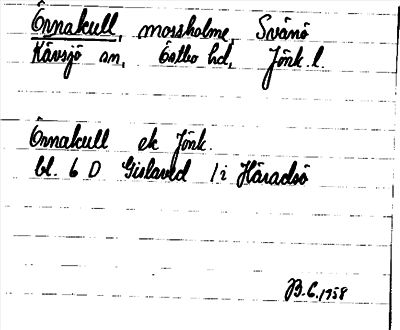 Örnakull, mossholme, Svänö
Kävsjö sn, Östbo hd, Jönk. l.
Örnakull ek Jönk.
bl. 6 D Gislaved 1 i Häradsö
B.C. 1958